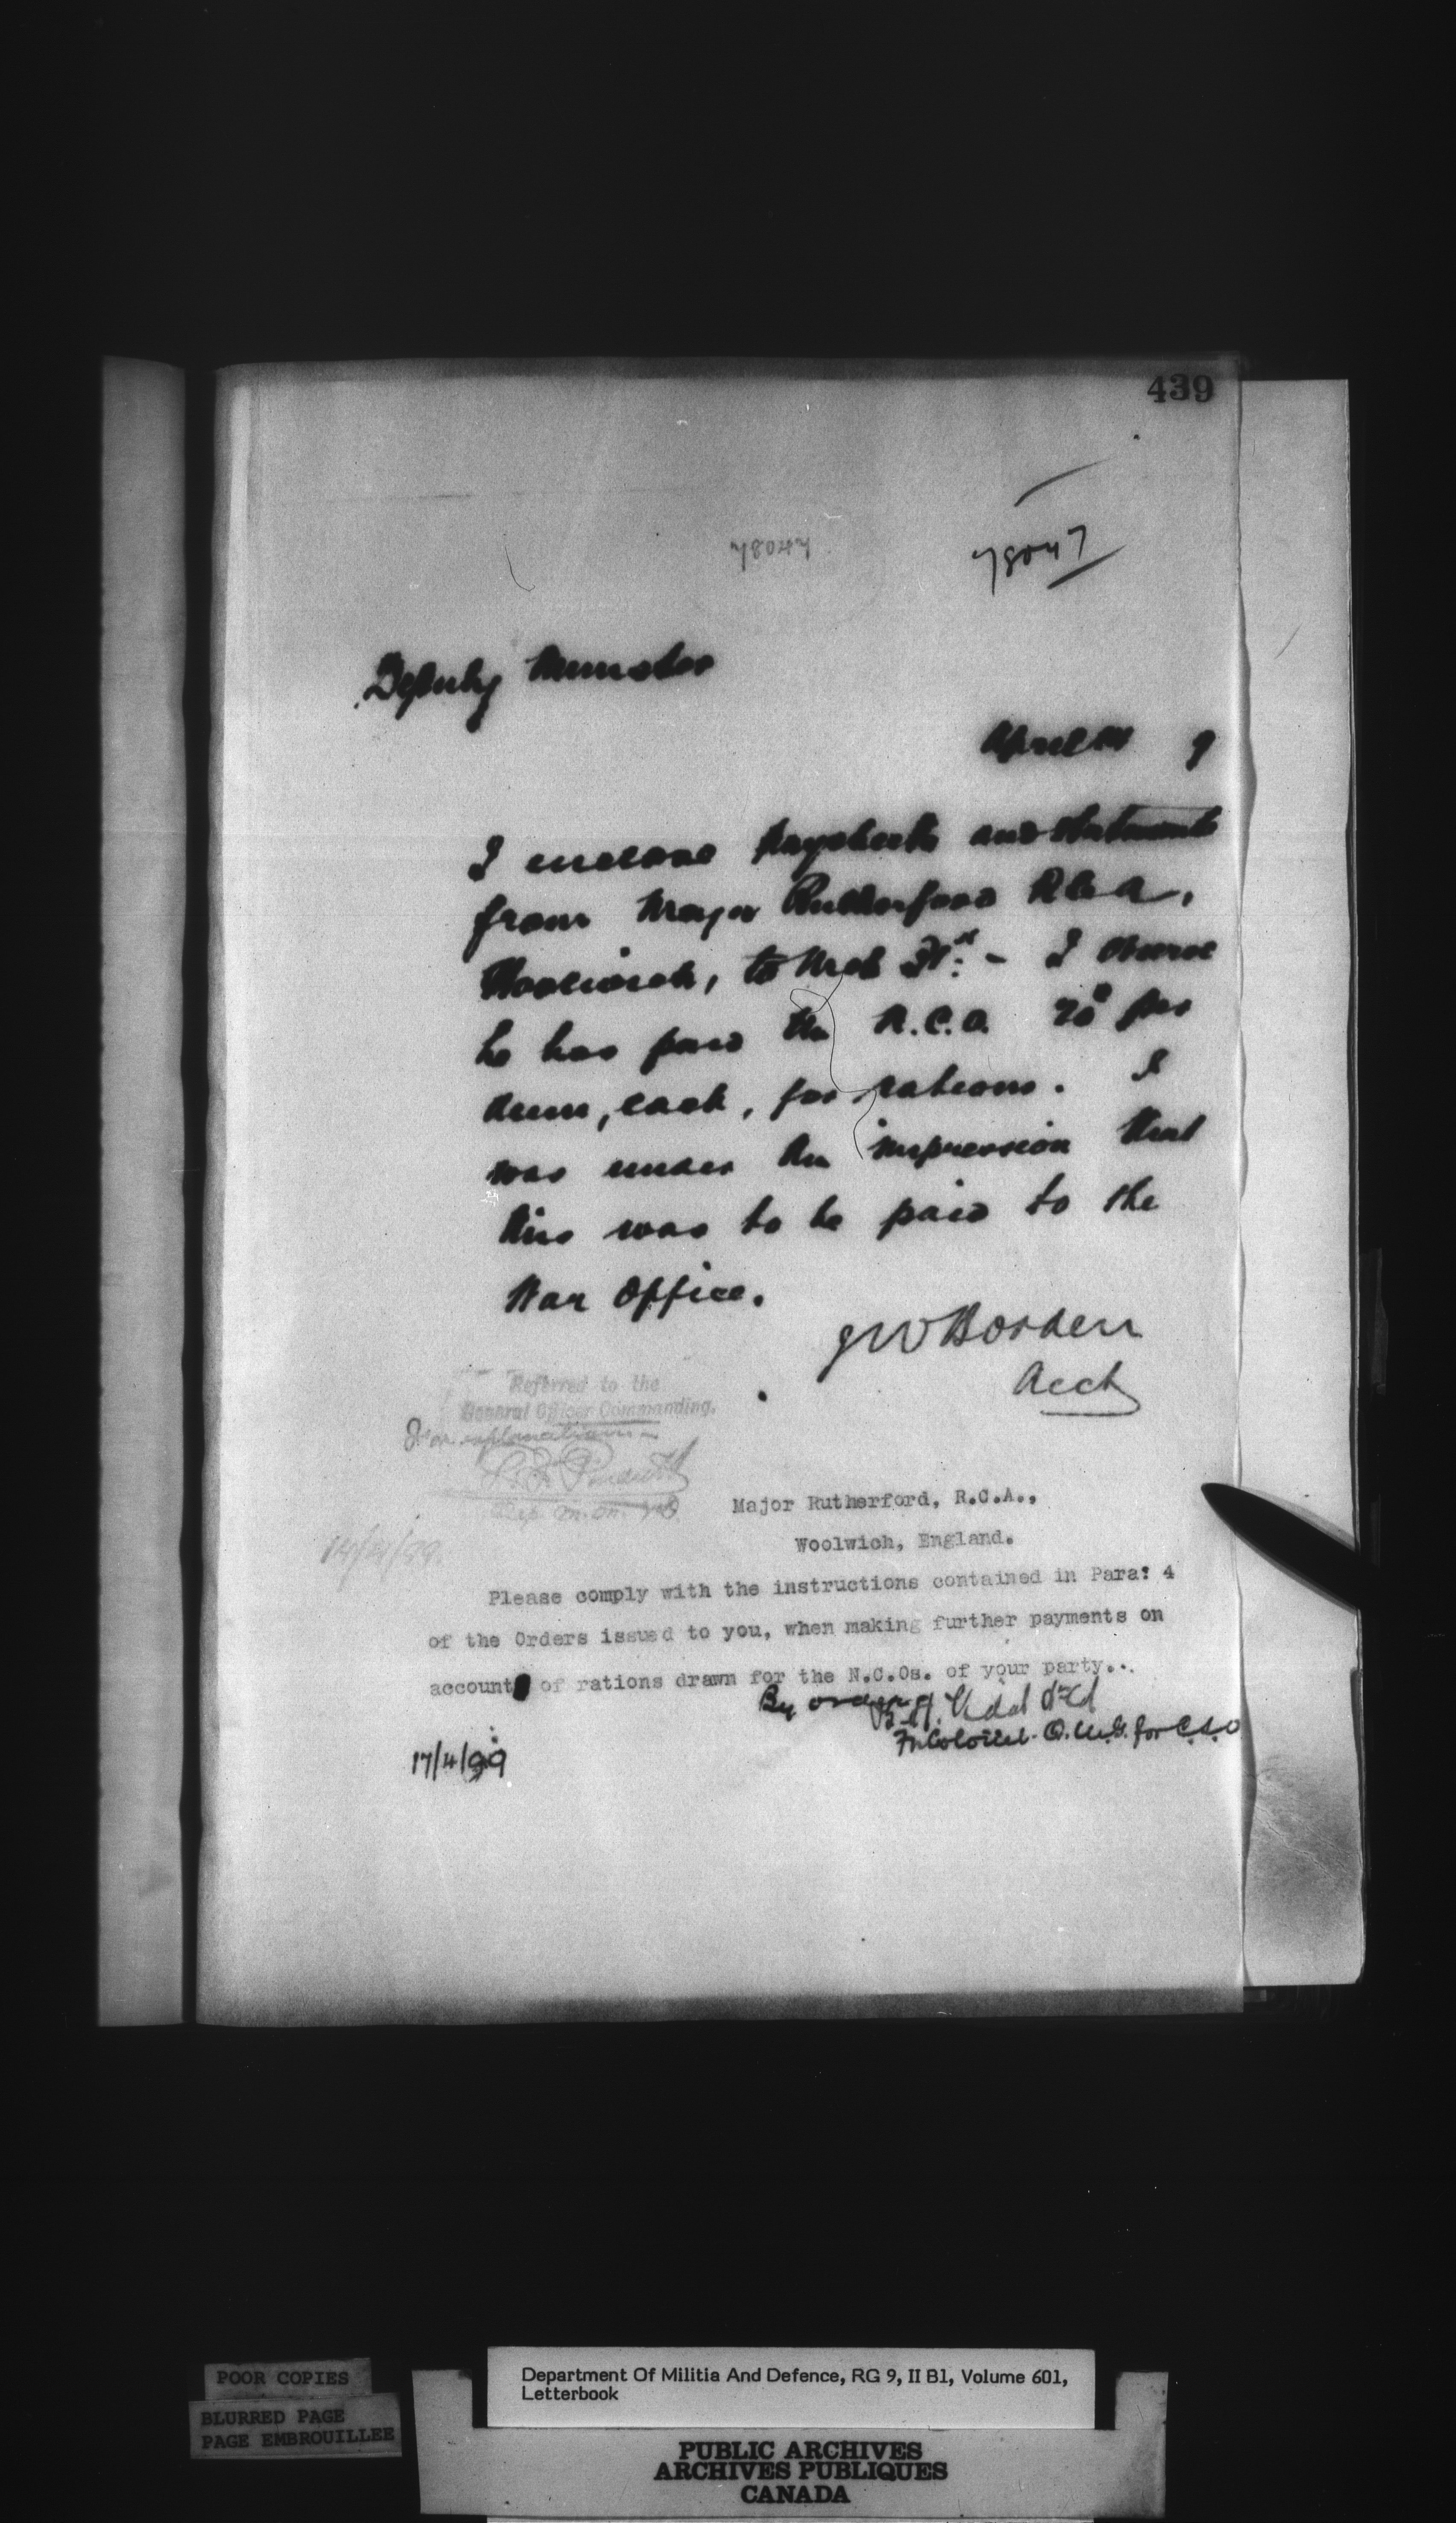 439
78047
78047
Deputy Minister
April 9
I enclose paysheets and statements
from Major Rutherford RCA,
Woolwich, to Mch 31st - I
he has paid the R.C.A. per
diem, each, for rations. I
was under the impression that
this was to be paid to the
War Office.
JWBorden
Acct
Referred to the
General Officer Commanding.
For explanation
Dep. M. of M. & D.
14/4/99
Major Rutherford, R.C.A.,
Woolwich, England.
Please comply with the instructions contained in Para: 4
of the Orders issued to you, when making further payments on
account of rations drawn for the N.C.Os. of your party..
By order
Vidal
Colonel. Q.M.G. for C.S.O
17/4/99
POOR COPIES
BLURRED PAGE
PAGE EMBROUILLEE
Department Of Militia And Defence, RG 9, II B1, Volume 601,
Letterbook
PUBLIC ARCHIVES
ARCHIVES PUBLIQUES
CANADA